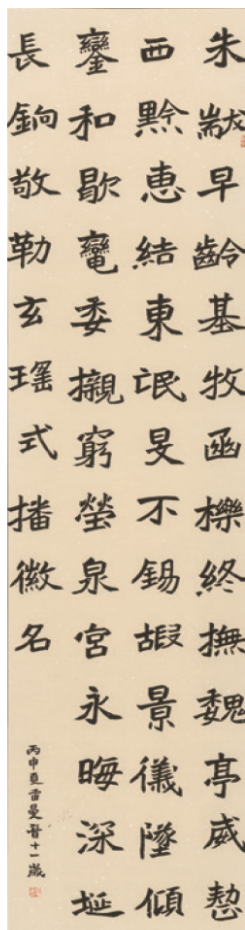 朱黻早齡基牧函櫟終撫魏亭威
西黔惠結東氓旻不錫嘏景儀墜傾
鑾和歇委櫬窮塋泉宮永晦深埏
長銄敬勒玄瑤式播徽名
丙申夏雷曼十一歲